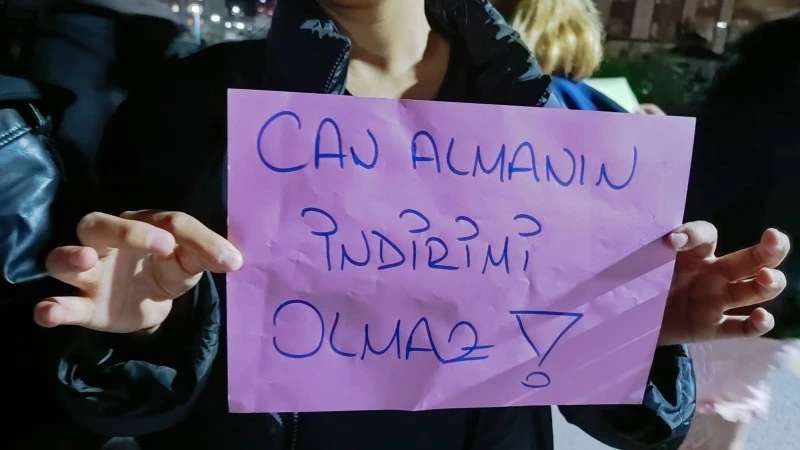 CAN ALMANIN
İNDİRİMİ
OLMAZ!